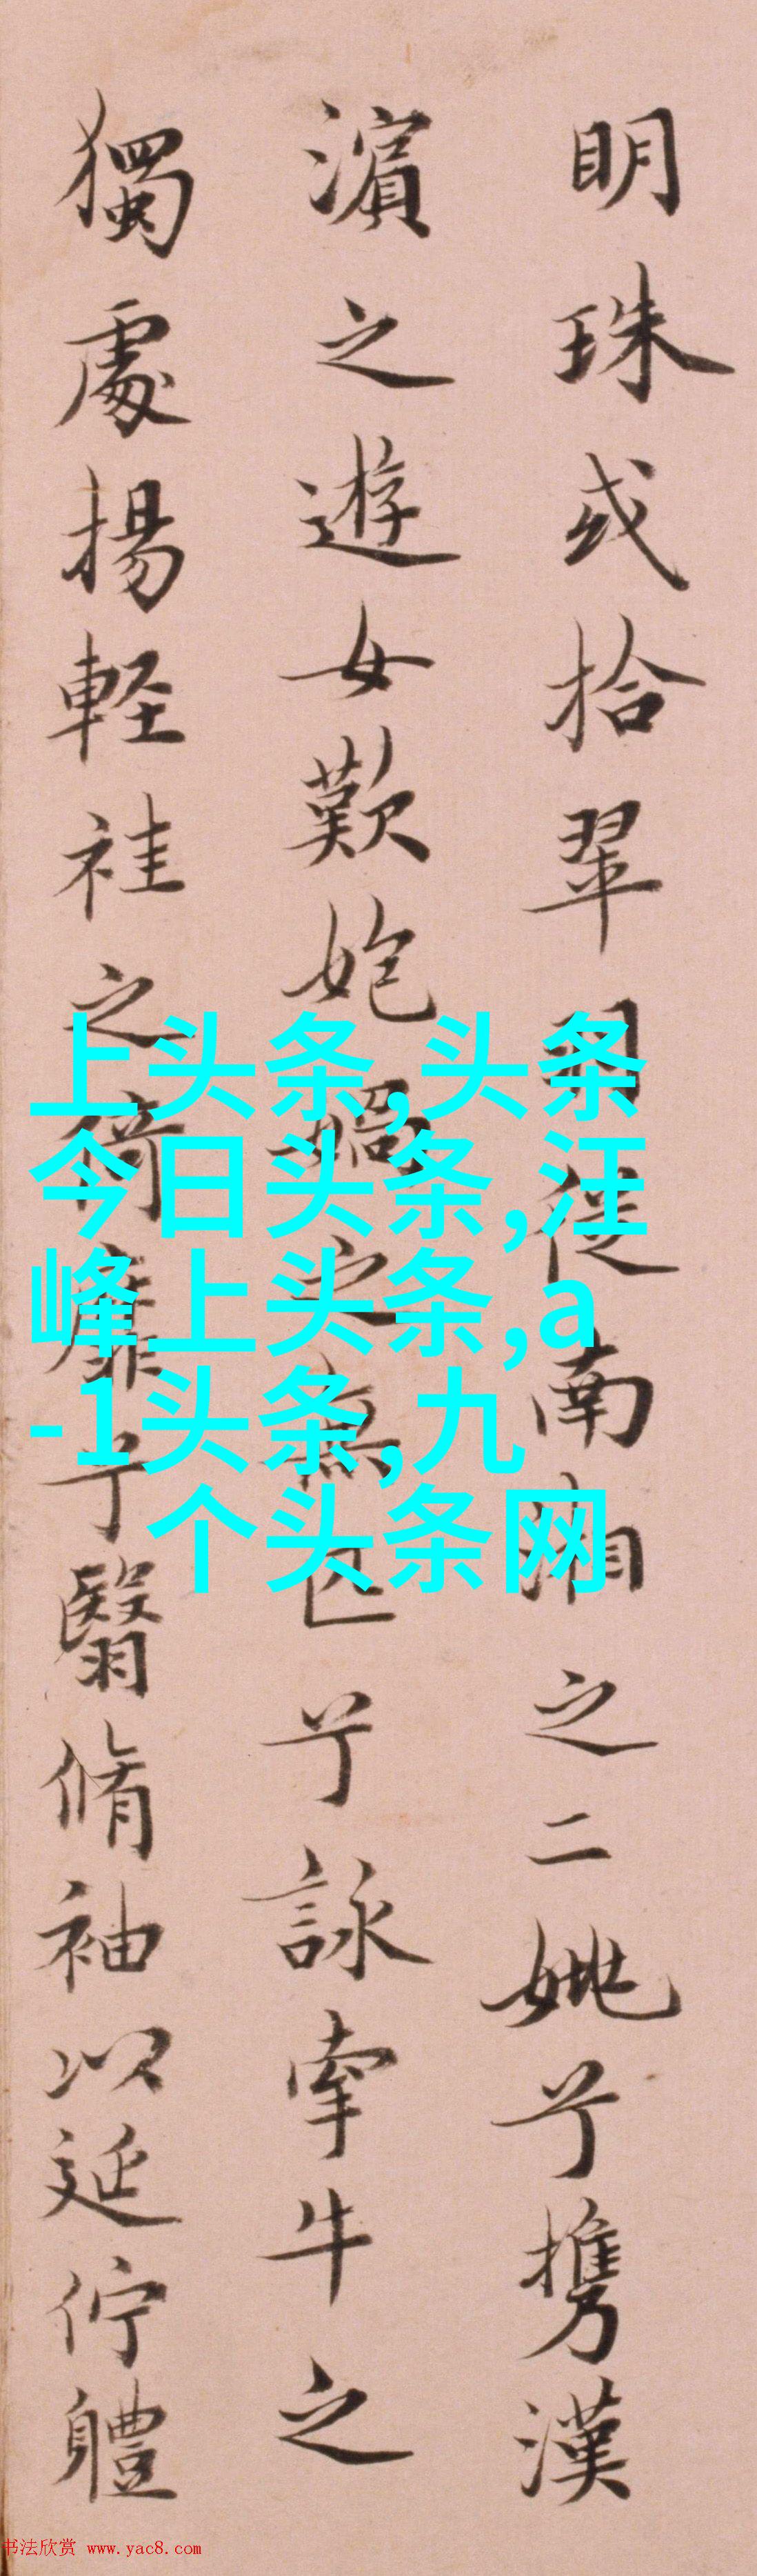 明珠或拾翠羽從南湘之二妣兮携漢
濵之遊女歎媧之無匹兮詠牽牛之
獨處揚軽袿之倚靡兮翳脩袖以延佇體
上头条,头条
今日头条,汪
峰上头条,a
-1头条,九
个头条网
书法欣赏 www.yac8.com